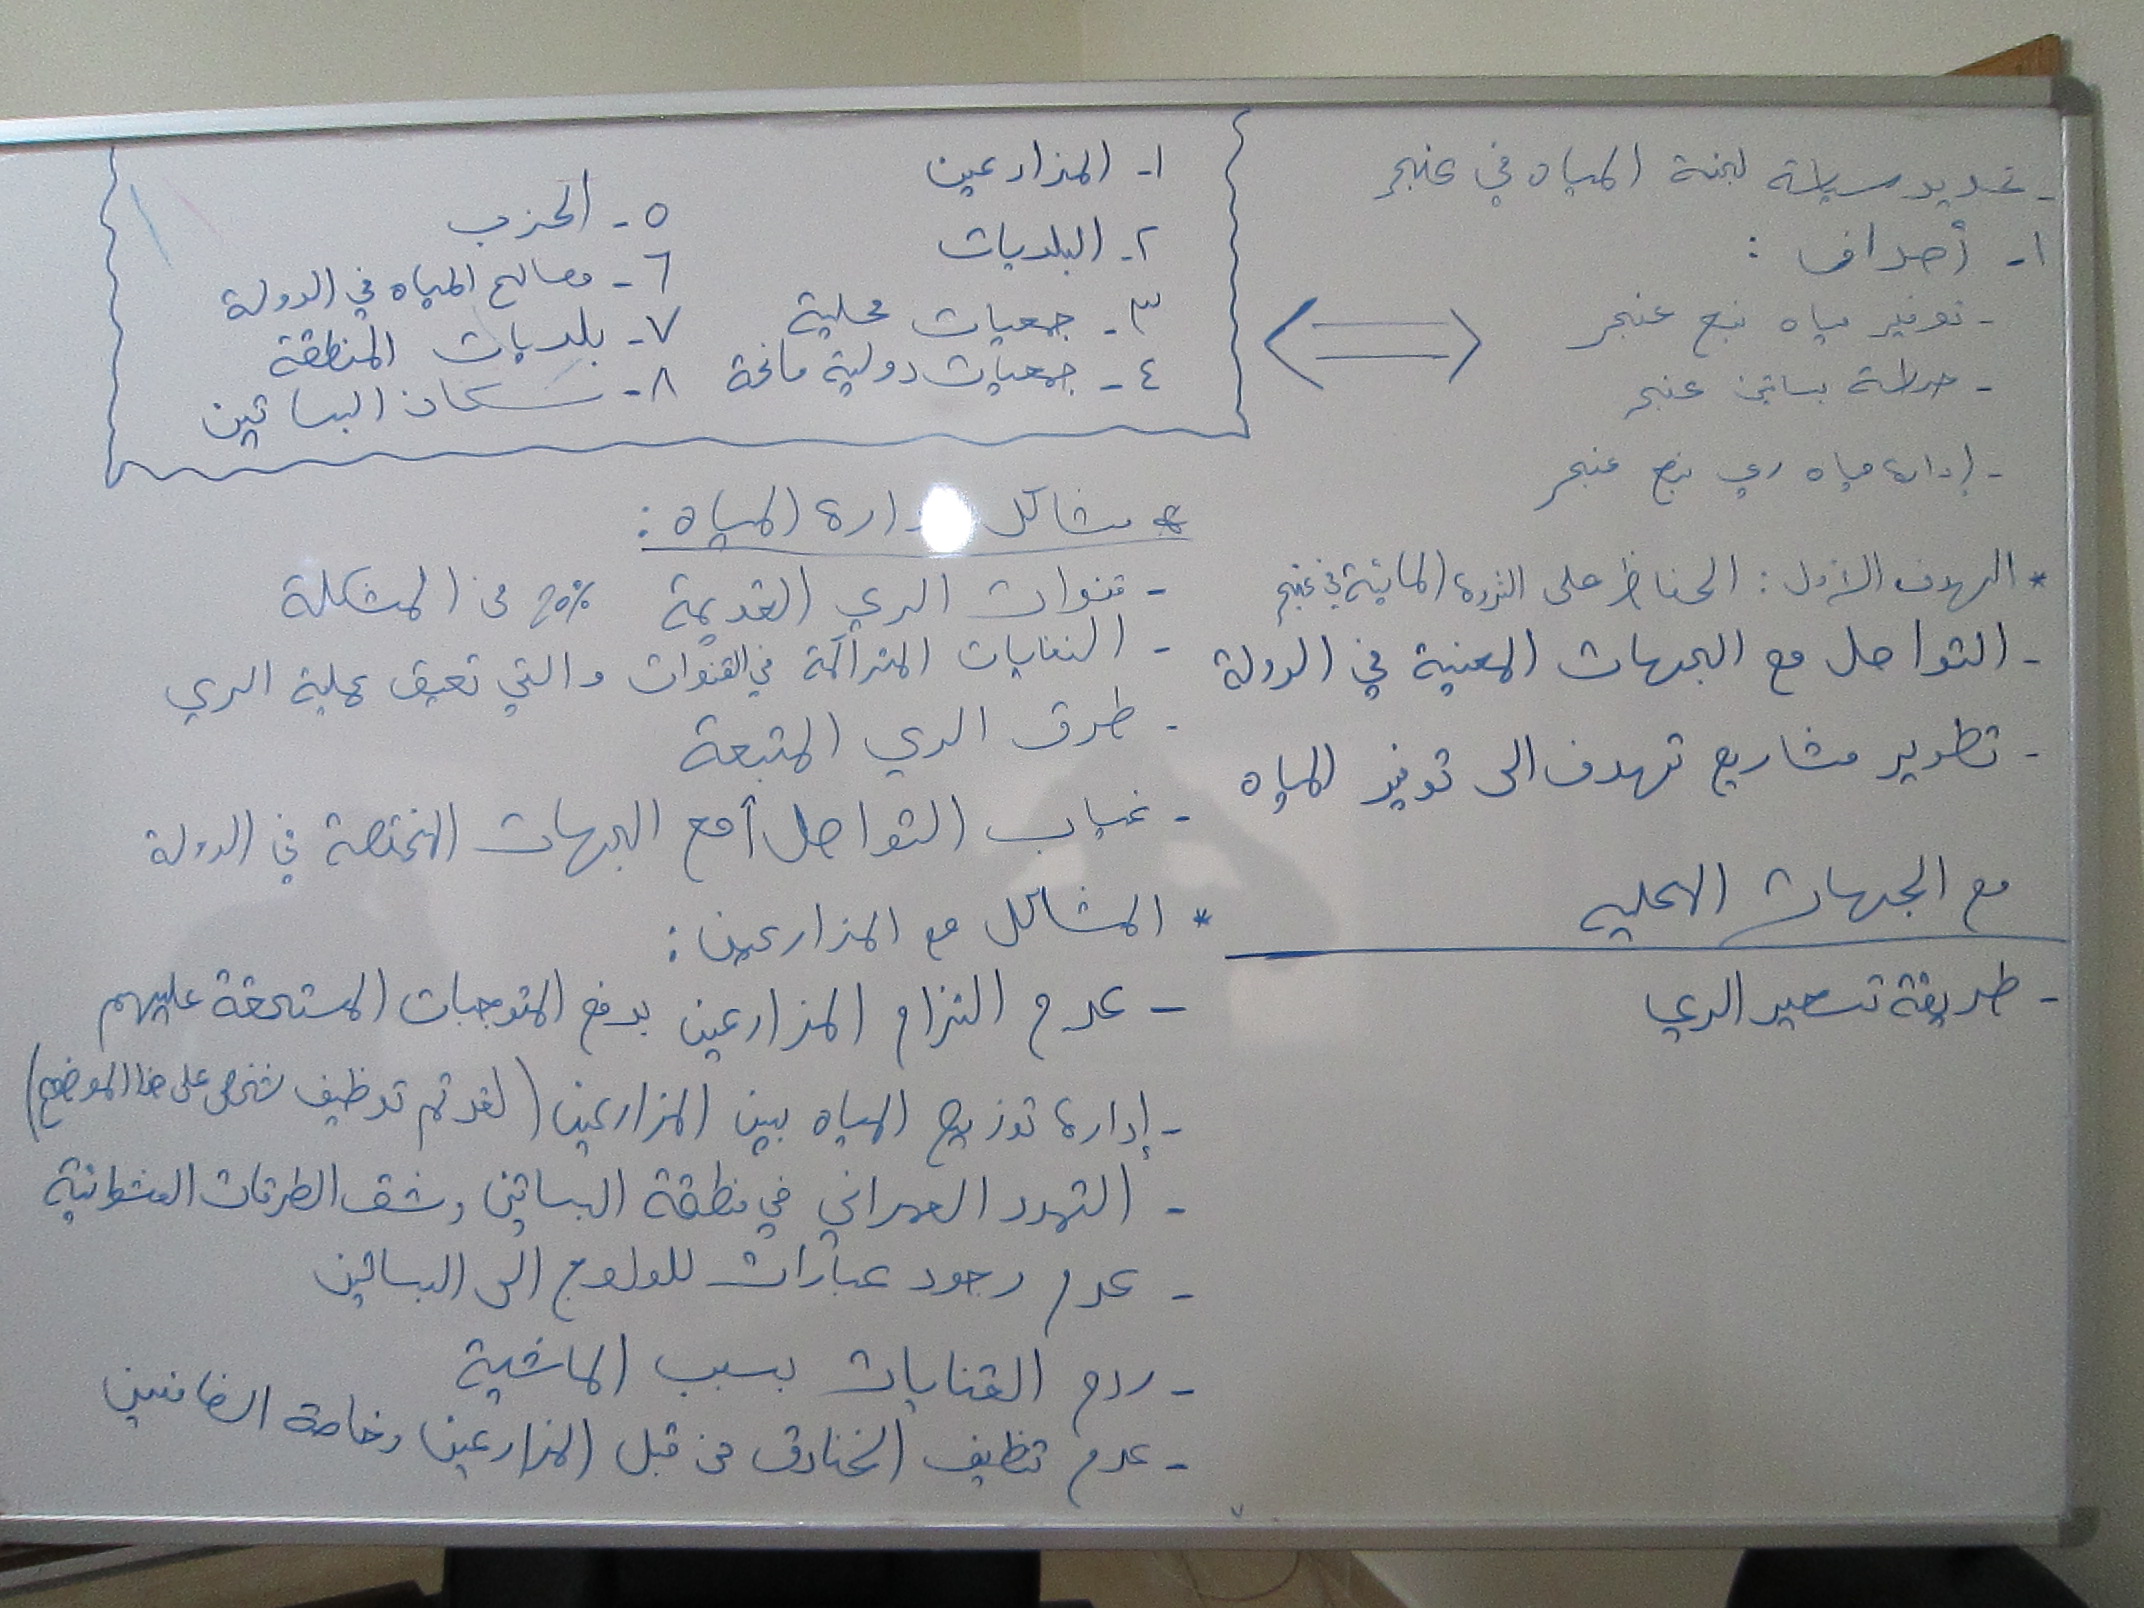 - تحديد سياسة لجنة المياه في عنجر
١- أهداف :
- توفير مياه نبع عنجر
- خريطة بساتين عنجر
- إدارة مياه ري نبع عنجر
* الهدف الأول : الحفاظ على الثروة المائية في عنجر
- التواصل مع الجهات المعنية في الدولة
- تطوير مشاريع تهدف الى توفير المياه
مع الجهات المحلية
- طريقة تسعير الري
١- المزارعين
٢- البلديات
٣- جمعيات محلية
٤- جمعيات دولية مانحة
٥- الحزب
٦- مصالح المياه في الدولة
٧- بلديات المنطقة
٨- سكان البساتين
* مشاكل إدارة المياه :
- قنوات الري القديمة %٢٥ من المشكلة
- النفايات المتراكمة في القنوات والتي تعيق عملية الري
- طرق الري المتبعة
- غياب التواصل مع الجهات المختصة في الدولة
* المشاكل مع المزارعين :
- عدم التزام المزارعين بدفع المتوجبات المستحقة عليهم
- إدارة توزيع المياه بين المزارعين (لقد تم توظيف شخص على هذا الموضوع)
- التمدد العمراني في منطقة البساتين وشق الطرقات العشوائية
- عدم وجود عبارات للولوج الى البساتين
- ردم القنايات بسبب الماشية
- عدم تنظيف الخنادق من قبل المزارعين وخاصة الضامنين